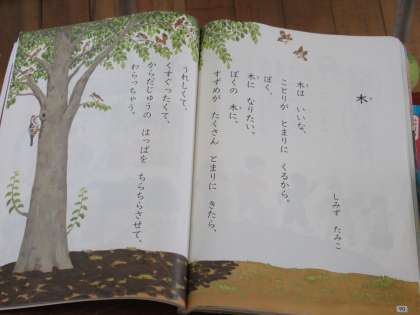 木
しみず たみこ
木は いいな、
ことりが とまりに くるから。
ぼく、
木に なりたい。
ぼくの 木に、
すずめが たくさん とまりに きたら、
うれしくて、
くすぐったくて、
からだじゅうの はっぱを ちらちらさせて、
わらっちゃう。
90